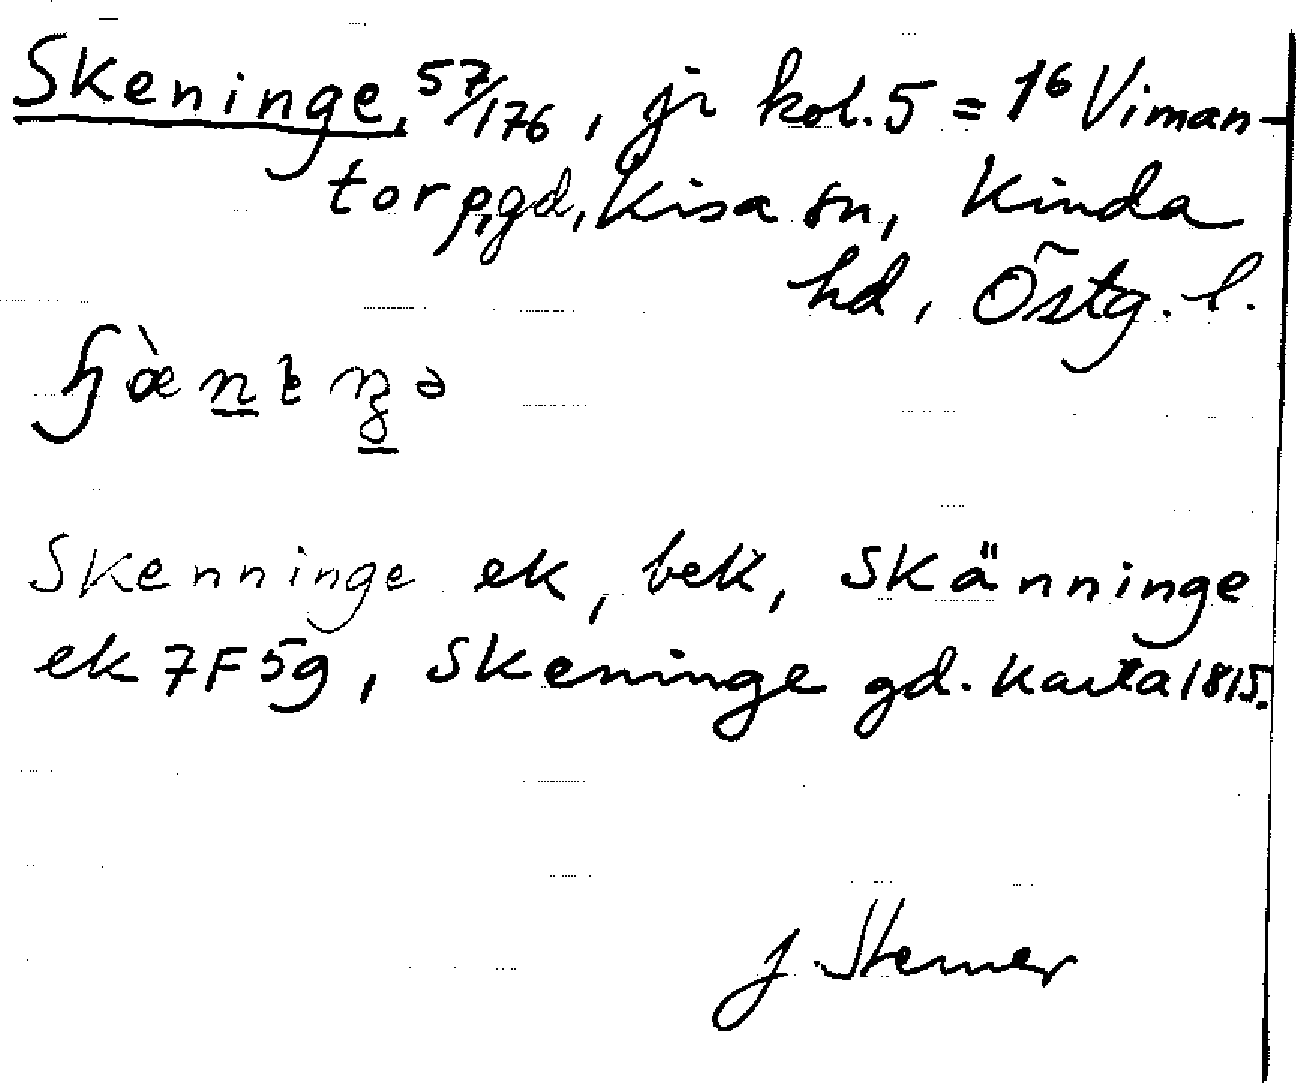 Skeninge, 57/176, jr kol. 5 = 1⁶ Viman-
torp, gd, Kisa sn, Kinda
hd, Östg. l.
Skenninge ek, bek, Skänninge
ek 7F5g, Skeninge gd. Karta 1815.
J. Sterner